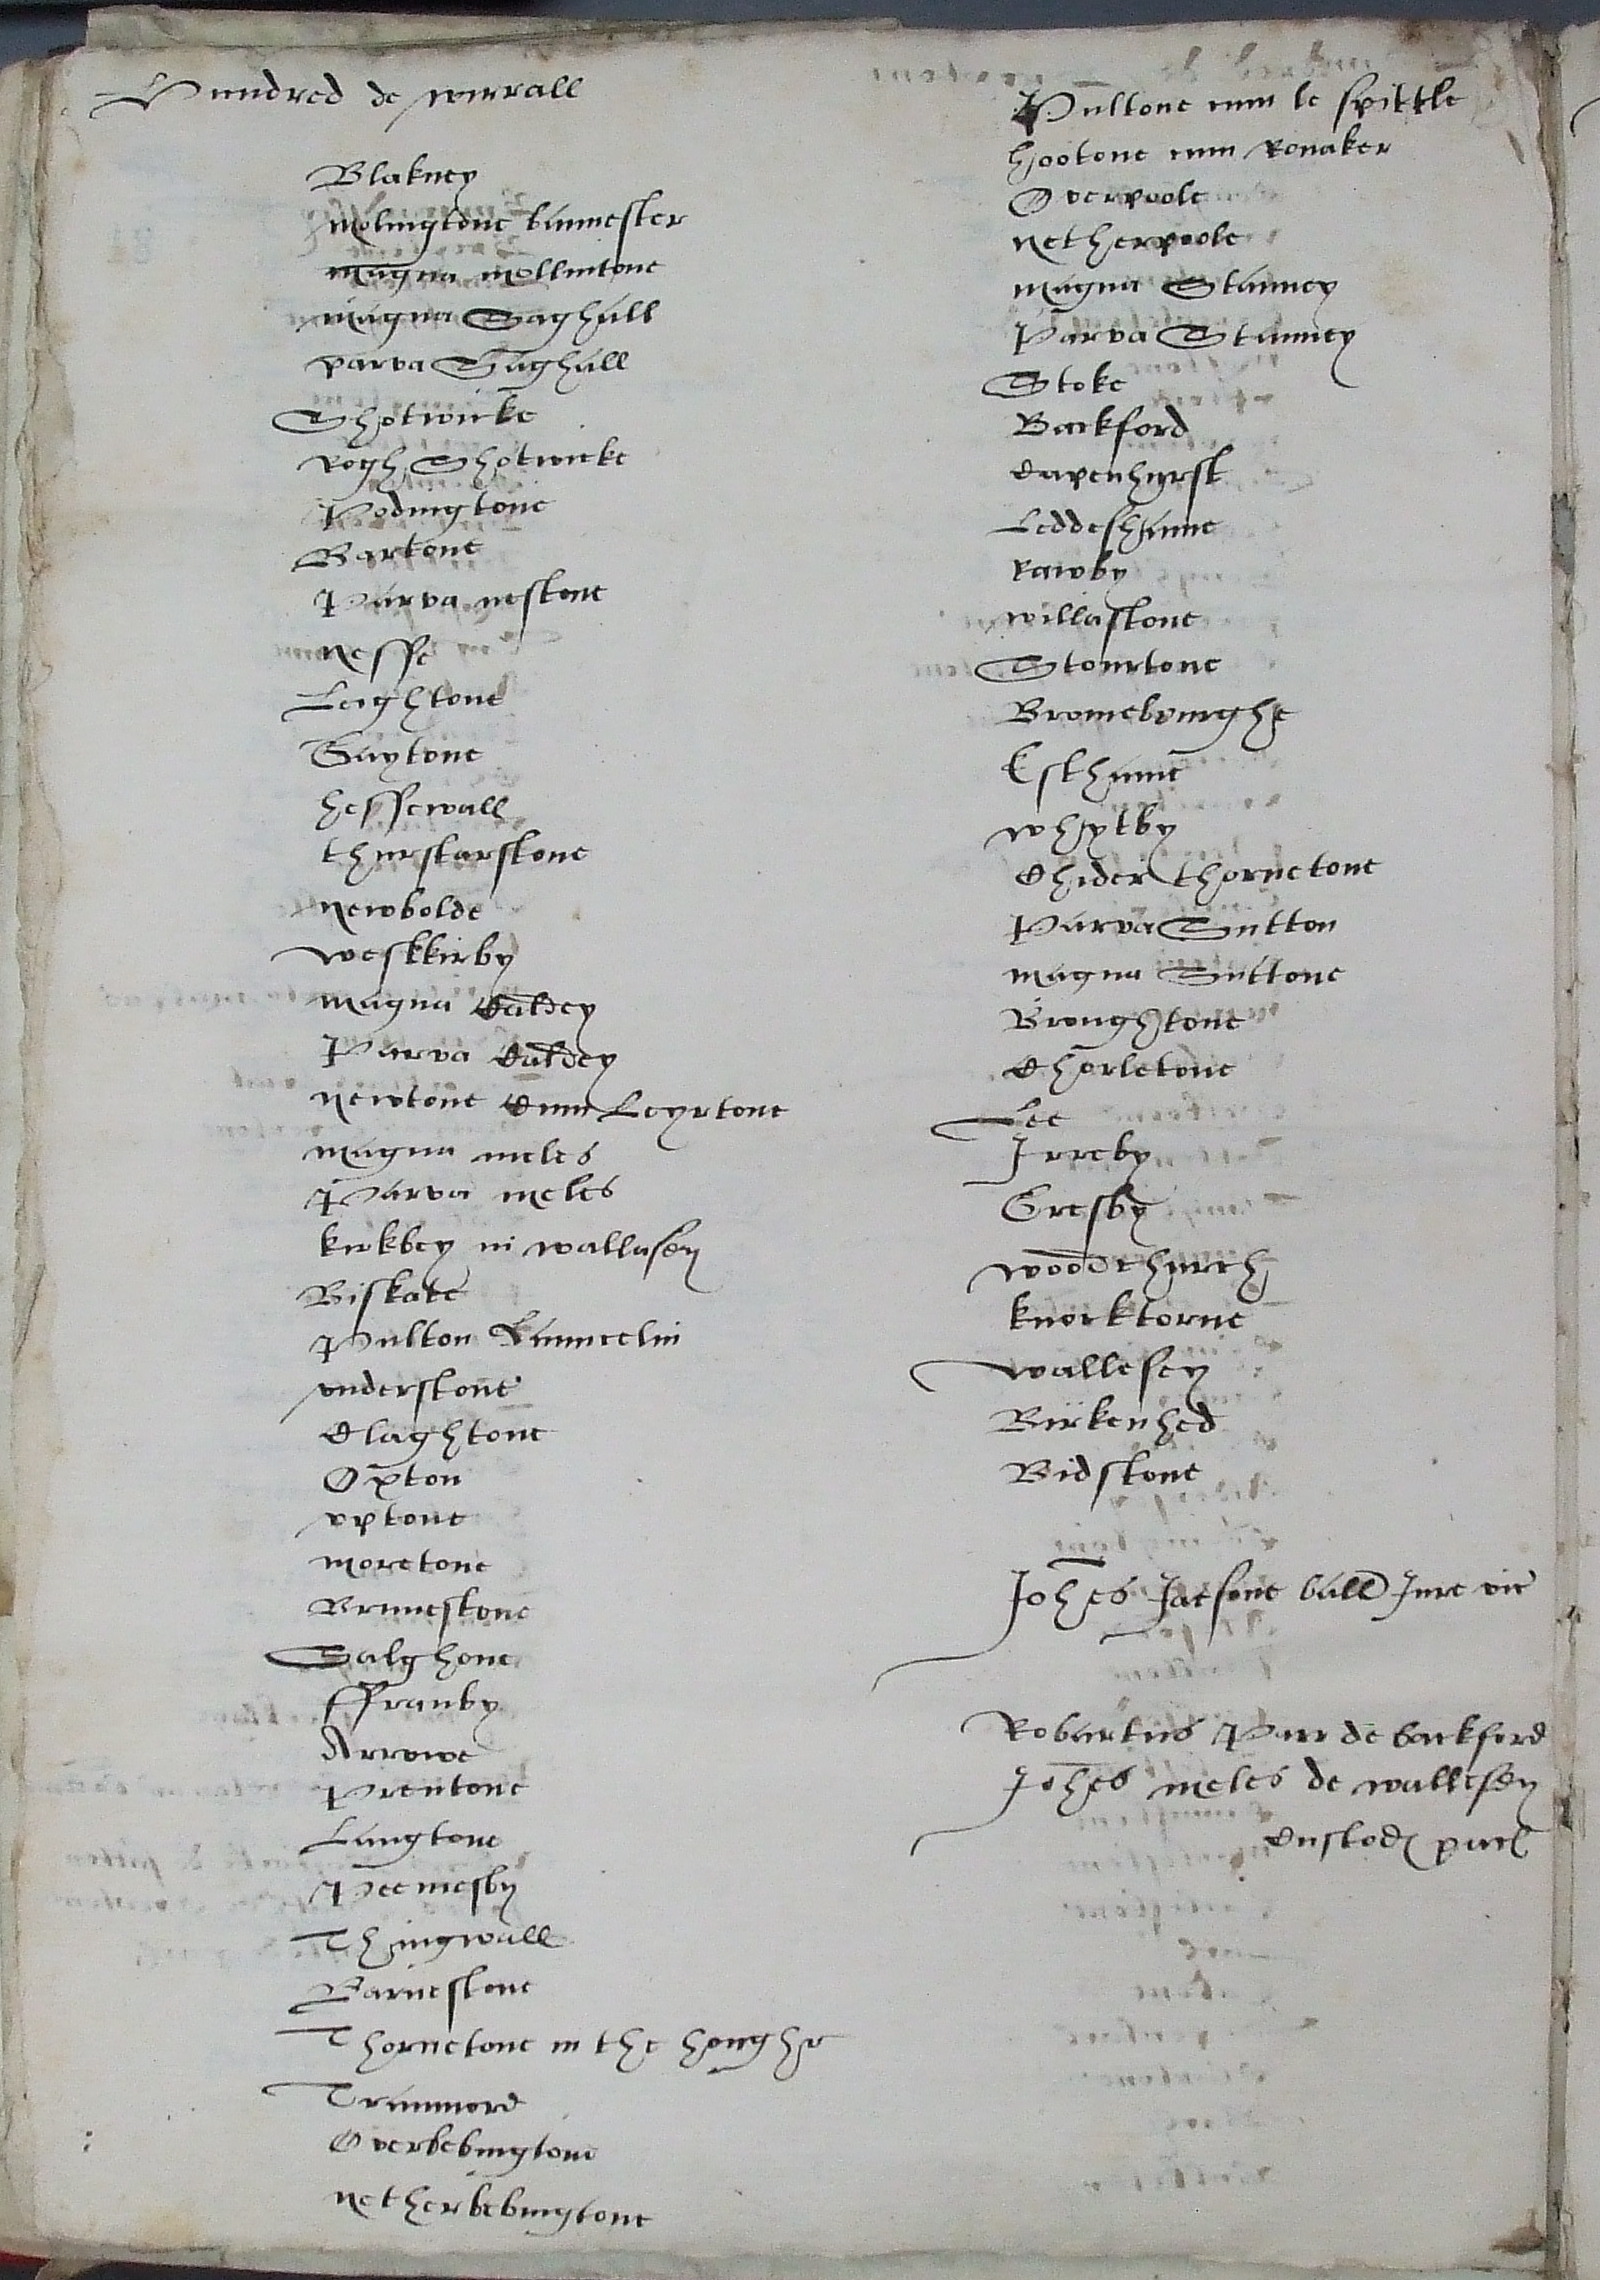 Hundred de wirrall
Blakney
Molingtone bannester
Magna mollintone
Magna Saghall
parva Saghall
Shotwicke
Rogh Shotwicke
Podingtone
Bartone
Parva nestone
Nesse
Leightone
Gaytone
hessewall
thurstarstone
Newbolde
westkirby
Magna Caldey
Parva Caldey
Newtone Cum Leyrtone
Magna meles
Parva meles
kirkbey in wallasey
Biskate
Pulton Launcelin
vnderstone
Claghtone
Oxton
vptone
moretone
Brunestone
Salghone
ffranby
Arrowe
Prentone
Langtone
Peemesby
Thingwall
Barnestone
Thornetone in the houghe
Tranmord
Overbebingtone
Netherbebingtone
Pultone cum le spittle
hootone cum Rovaker
Overpoole
Netherpoole
Magna Stanney
Parva Stanney
Stoke
Backford
Capenhurst
Leddeshame
Rawby
willastone
Stourtone
Bromebrughe
Esthame
whytby
Chider thornetone
Parva Sutton
magna Suttone
Broughtone
Chorletone
Lee
Irreby
Gresby
woodchurch
knocktorne
wallesey
Birkenhed
Bidstone
Johes Jacsone ball Jure vic
Robartus Parr de backford
Johes meles de wallesey
Custod pacs